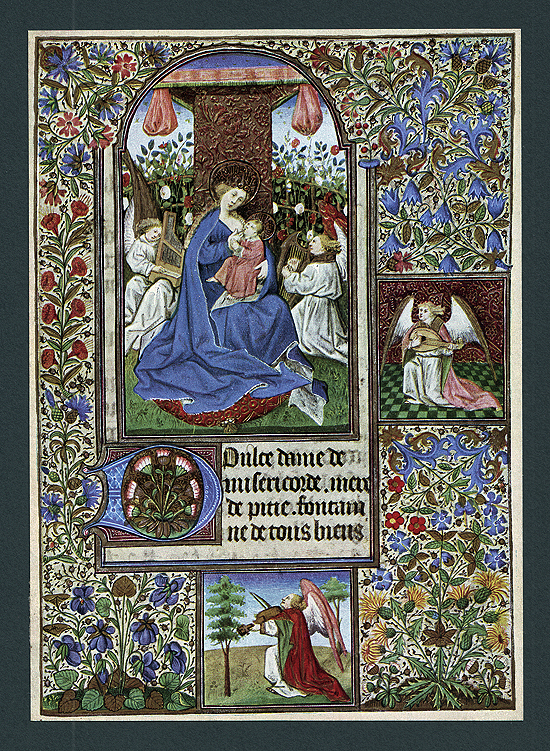 DOulce dame de
misericorde. mere
de pitie. fontain
ne de tous biens